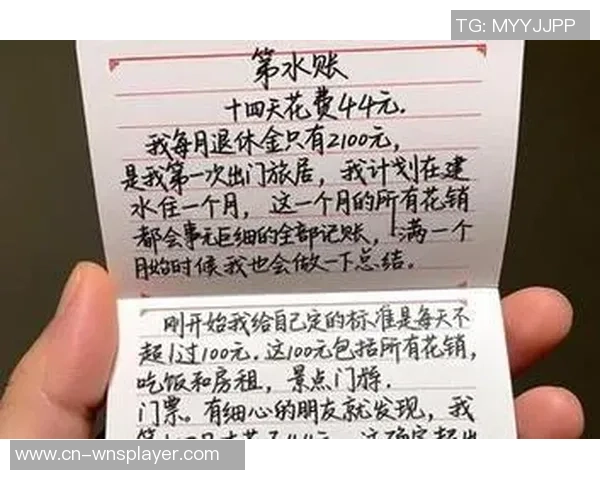 TG: MYYJJPP
第水账
十四天花费44元.
我每月退休金只有2100元，
是我第一次出门旅居，我计划在建
水住一个月，这一个月的所有花销
都会事无巨细的全部记账，满一个
月始时候我也会做一下总结。
刚开始我给自己定的标准是每天不
超过100元.这100元包括所有花销，
吃饭和房租，景点门牌.
门票。有细心的朋友就发现，我
www.cn-wnsplayer.com